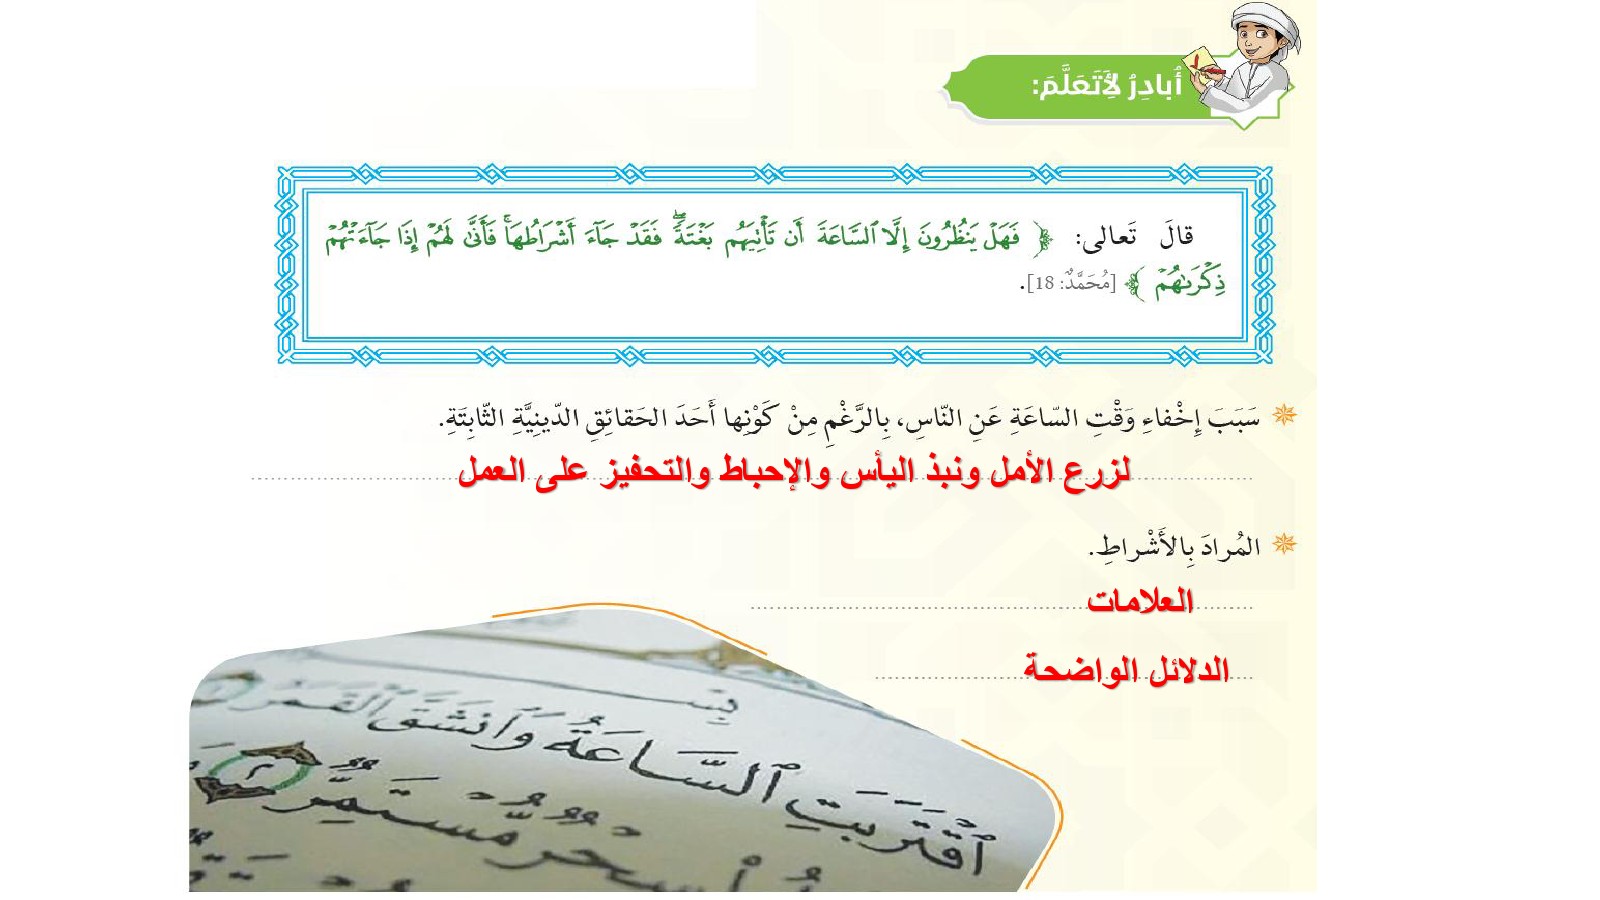 أُبادِرُ لِأَتَعَلَّمَ:
قالَ تَعالى: ﴿ فَهَلْ يَنظُرُونَ إِلَّا ٱلسَّاعَةَ أَن تَأْتِيَهُم بَغْتَةً ۖ فَقَدْ جَآءَ أَشْرَاطُهَا ۚ فَأَنَّىٰ لَهُمْ إِذَا جَآءَتْهُمْ
ذِكْرَىٰهُمْ ﴾ [مُحَمَّدٌ: 18].
سَبَبَ إِخْفاءِ وَقْتِ السّاعَةِ عَنِ النّاسِ، بِالرَّغْمِ مِنْ كَوْنِها أَحَدَ الحَقائِقِ الدّينِيَّةِ الثّابِتَةِ.
لزرع الأمل ونبذ اليأس والإحباط والتحفيز على العمل
المُرادَ بِالأَشْراطِ.
العلامات
الدلائل الواضحة
بِسْــ
ٱقْتَرَبَتِ ٱلسَّاعَةُ وَٱنشَقَّ ٱلْقَمَرُ
سِحْرٌ مُّسْتَمِرٌّ ٢